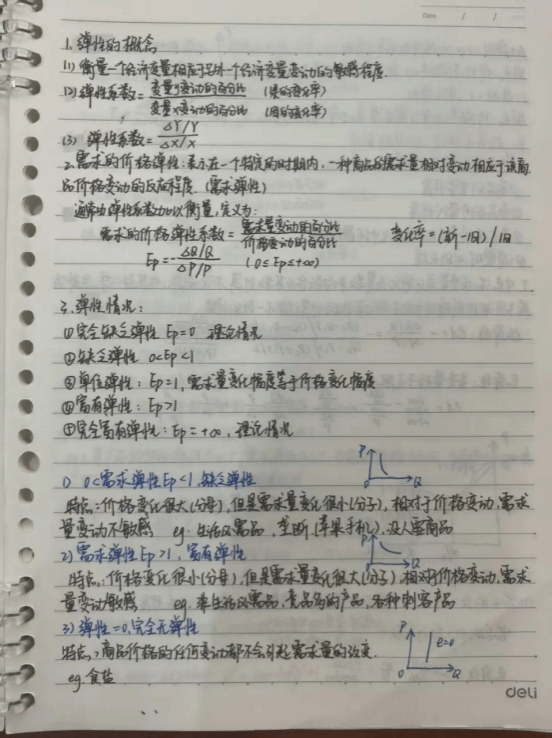 Date / /
1. 弹性的概念
(1) 衡量一个经济变量相应于另外一个经济变量变动的敏感程度.
(2) 弹性系数 = 变量y变动的百分比 / 变量x变动的百分比 (果的变化率) (因的变化率)
(3) 弹性系数 = ΔY/Y / ΔX/X
2. 需求的价格弹性: 表示在一个特定的时期内, 一种商品的需求量相对变动相应于该商
品价格变动的反应程度. (需求弹性)
通常由弹性系数加以衡量, 定义为:
需求的价格弹性系数 = 需求量变动的百分比 / 价格变动的百分比 变化率 = (新-旧) / 旧
Ep = - ΔQ/Q / ΔP/P (0≤Ep≤+∞)
3. 弹性情况:
①完全缺乏弹性 Ep=0 理论情况
②缺乏弹性 0<Ep<1
③单位弹性: Ep=1, 需求量变化幅度等于价格变化幅度
④富有弹性: Ep>1
⑤完全富有弹性: Ep=+∞, 理论情况
1) 0<需求弹性Ep<1, 缺乏弹性
P
Q
特点: 价格变化很大(分母), 但是需求量变化很小(分子), 相对于价格变动, 需求
量变动不敏感 eg. 生活必需品, 垄断(苹果手机), 没人要商品
2) 需求弹性Ep>1, 富有弹性
P
Q
特点: 价格变化很小(分母), 但是需求量变化很大(分子), 相对于价格变动, 需求
量变动敏感 eg. 非生活必需品, 竞品多的产品, 各种刺客产品
3) 弹性=0, 完全无弹性
特点: 商品价格的任何变动都不会引起需求量的改变.
eg. 食盐
P
e=0
O
Q
deli